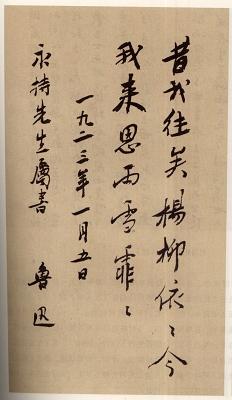 昔我往矣楊柳依〻今
我来思雨雪霏〻
一九二三年一月五日
永持先生屬書 魯迅